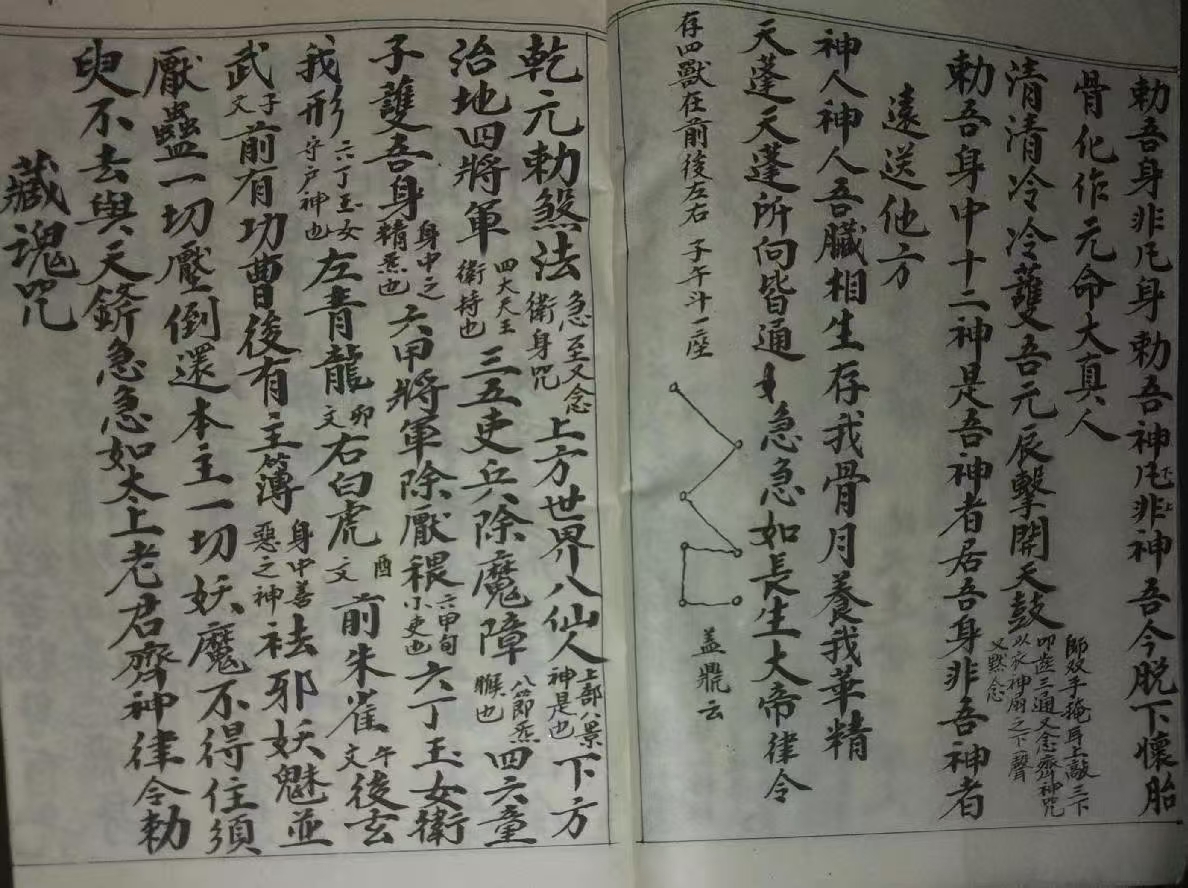 勅吾身非凡身勅吾神凡非神吾今脱下懷胎
骨化作元命大真人
清清冷冷護吾元辰擊開天鼓師双手掩耳上敲三下叩齒三通又念齊神咒以衣神扇之下聲又默念
勅吾身中十二神是吾神者居吾身非吾神者
遠送他方
神人神人吾臟相生存我骨月養我華精
天蓬天蓬所向皆通急急如長生大帝律令
存四獸在前後左右 子午斗一座
蓋鼎云
乾元勅煞法急至又念衛身咒上方世界八仙人上部八景神是也下方
治地四將軍四大天王衛持也三五吏兵除魔障八節炁猴也四六童
子護吾身身中之精炁也六甲將軍除厭禝六甲旬小吏也六丁玉女衛
我形六丁玉女守户神也左青龍卯文右白虎酉文前朱雀午文後玄
武子文前有功曹後有主簿身中善惡之神祛邪妖魅並
厭蠱一切壓倒還本主一切妖魔不得住須
臾不去與天斧急急如太上老君齊神律令勅
藏魂咒